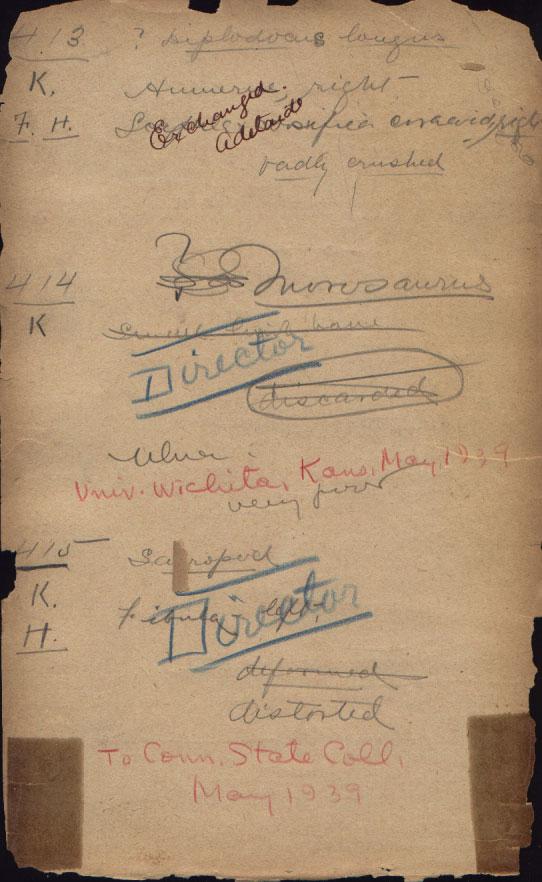 413 ? Diplodocus longus
K. Humerus, right
Exchanged.
Adelaide
F. H. right
badly crushed
414 ? Morosaurus
K
Director
discarded
Ulna
Univ. Wichita, Kans. May, 1939
very poor
415 Sauropod
K. Fibula, left,
Director
H.
deformed
distorted
To Conn. State Coll.
May 1939